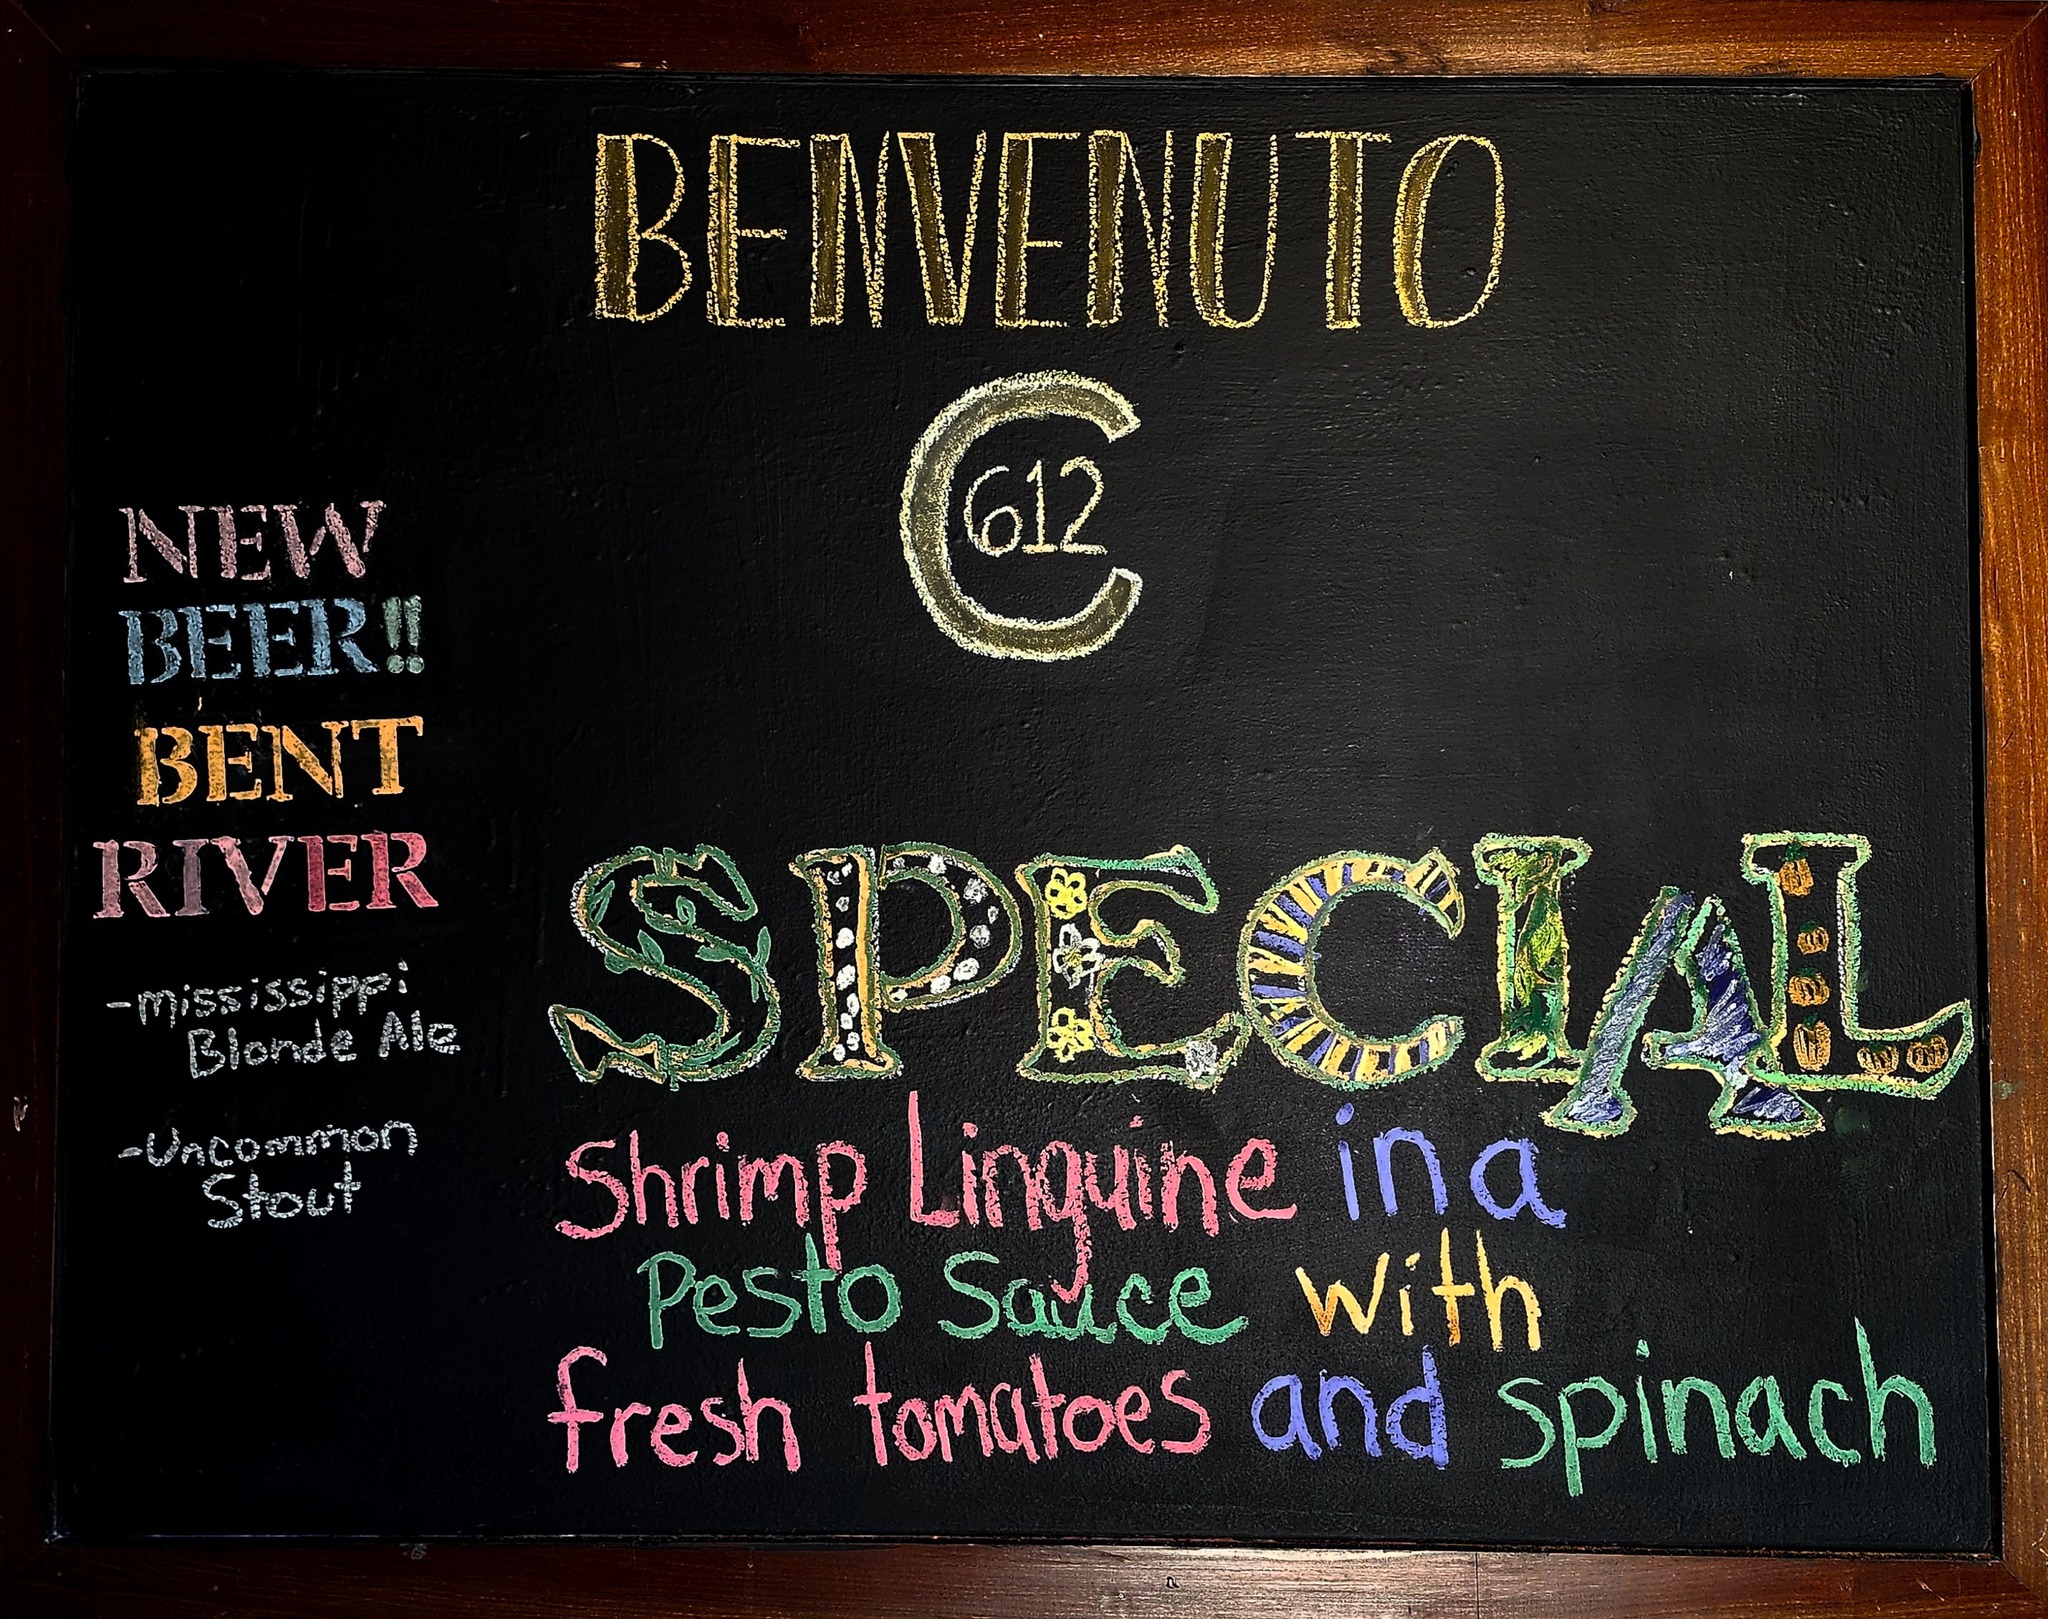 BENVENUTO
C
612
NEW
BEER!!
BENT
RIVER
-mississippi
Blonde Ale
-Uncommon
Stout
SPECIAL
Shrimp Linguine in a
Pesto Sauce with
fresh tomatoes and spinach